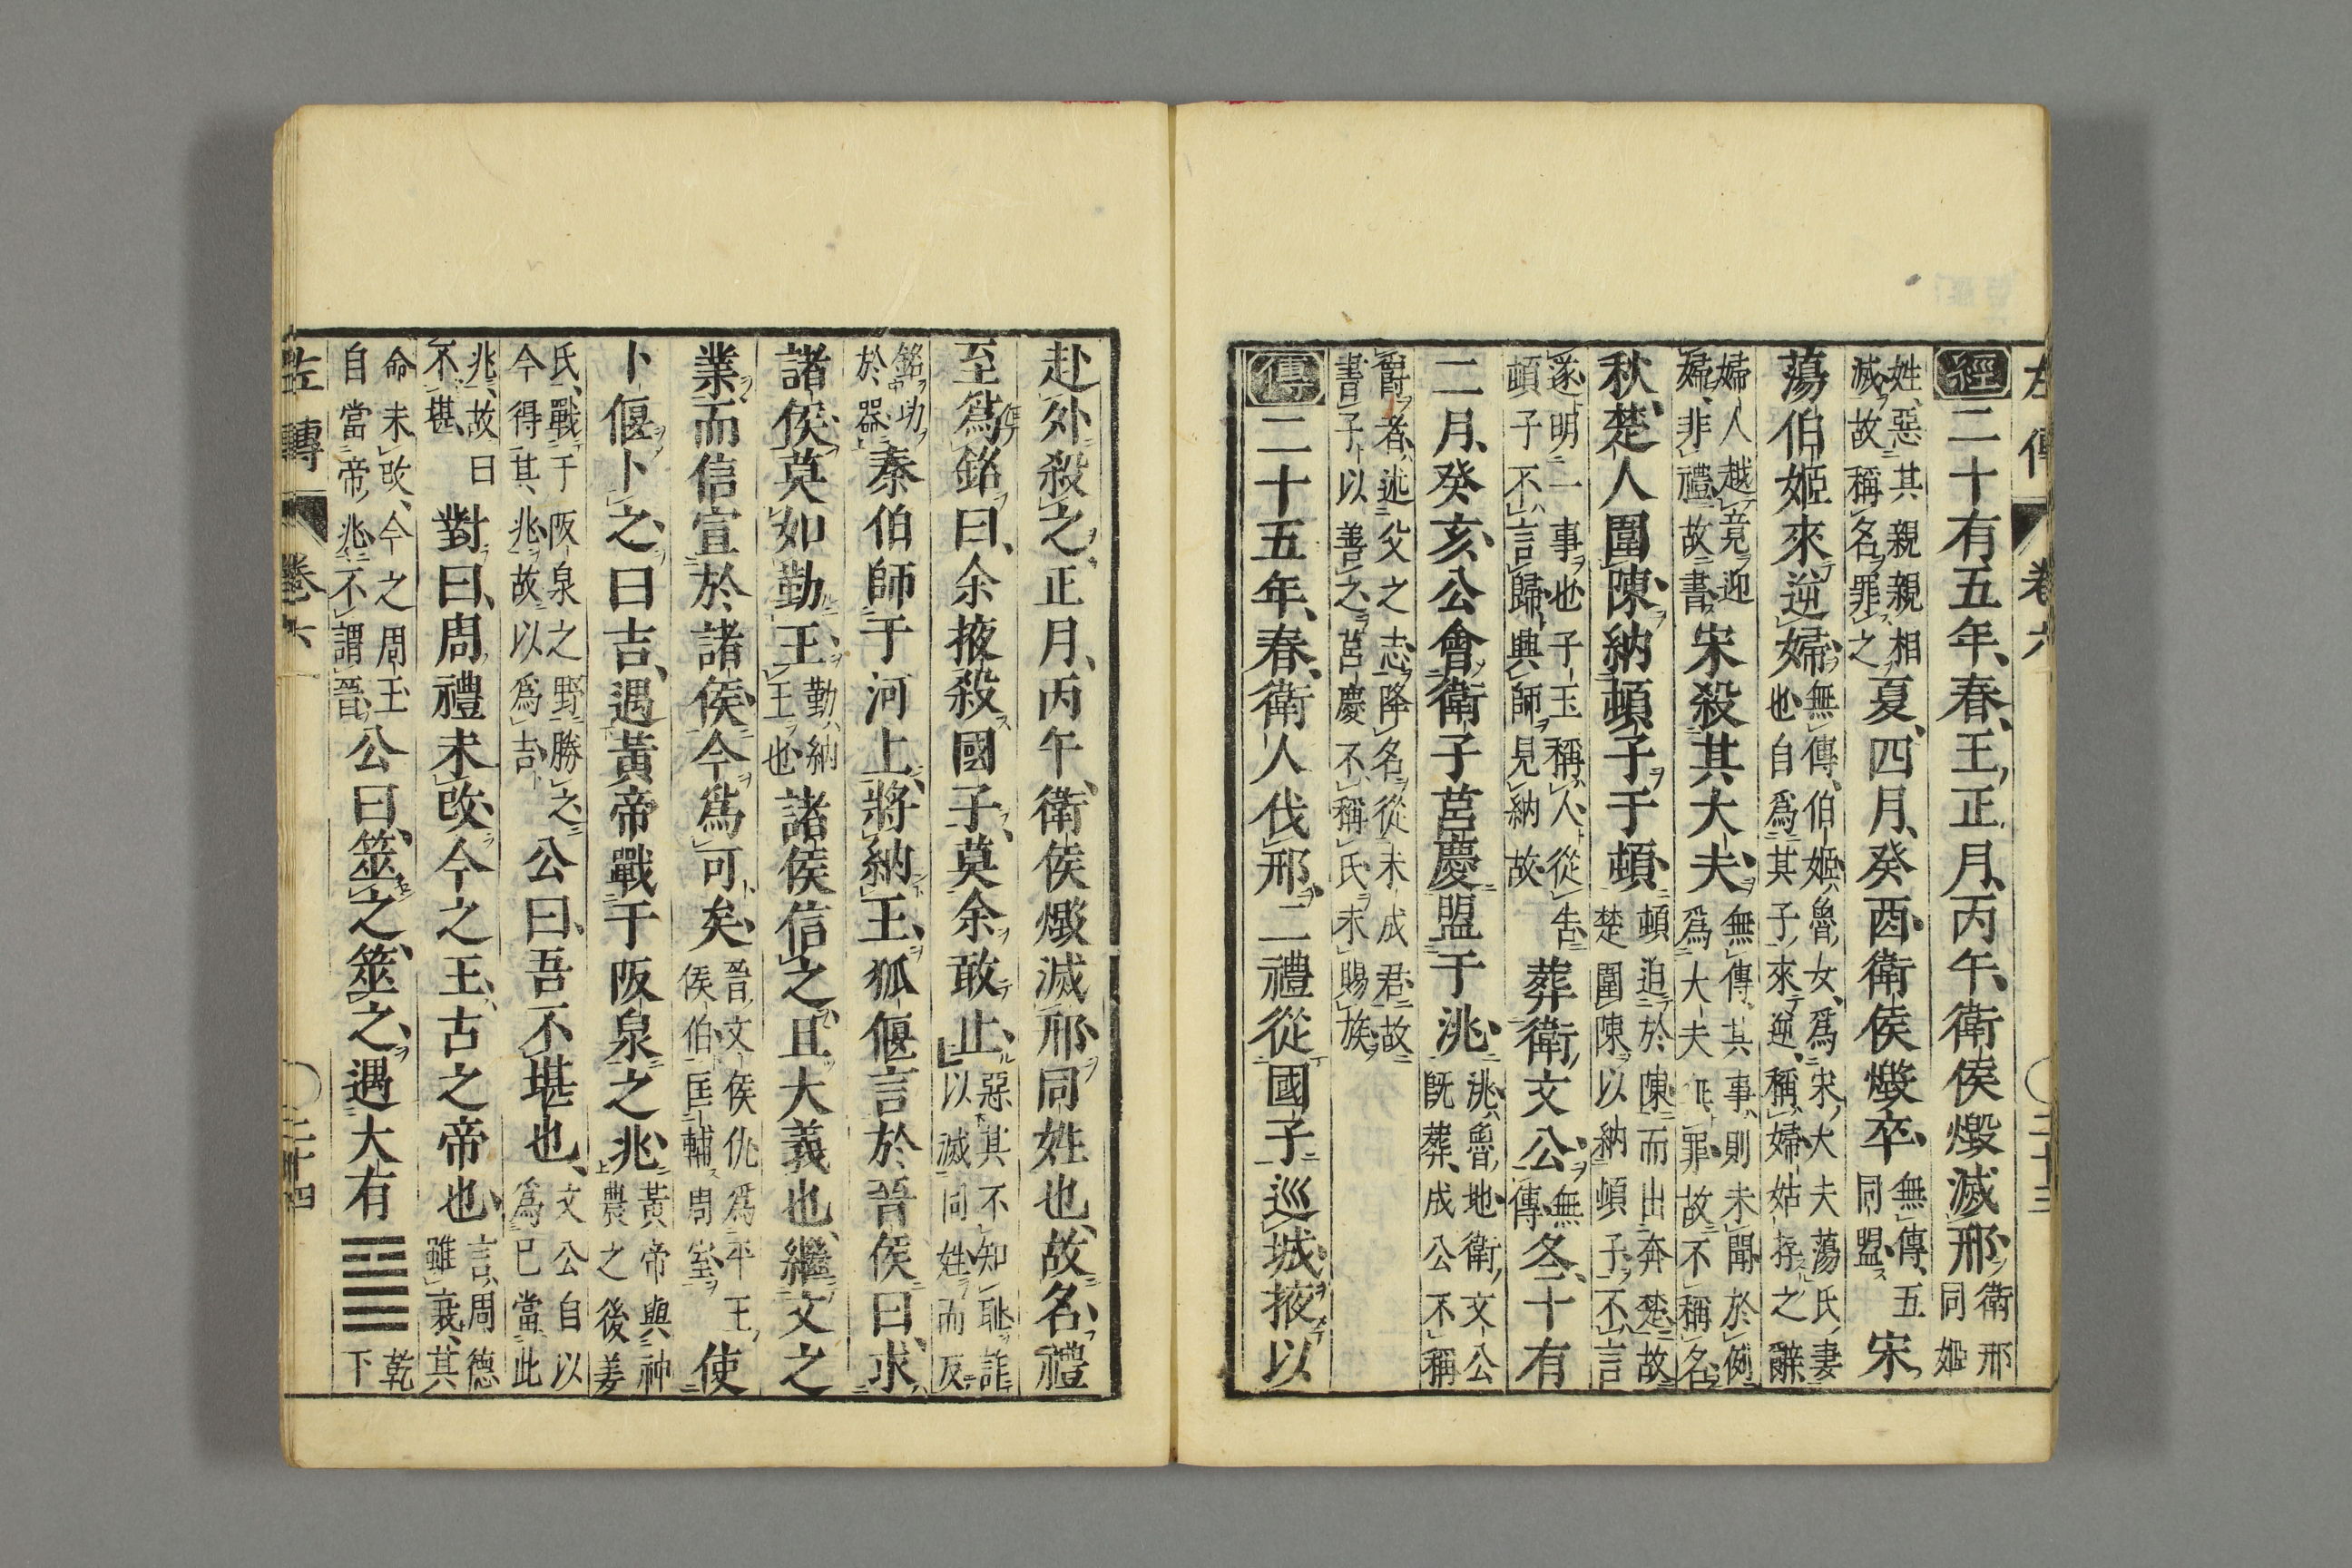 左傳 卷六 二十三
經二十有五年、春、王正月、丙午、衛侯燬滅邢、衛邢同姬
姓、惡其親親相滅、故稱名罪之夏、四月、癸酉、衛侯燬卒、無傳、五同盟、宋
蕩伯姬來逆婦、無傳、伯姬、魯女、爲宋大夫蕩氏妻也自爲其子來逆、稱婦、姑存之辭
婦人越竟迎婦、非禮、故書宋殺其大夫、無傳、其事則未聞、於例爲大夫無罪、故不稱名
秋、楚人圍陳、納頓子于頓、頓迫於陳而出奔楚、故楚圍陳以納頓子、不言
遂、明一事也子玉稱人、從告頓子不言歸、興師見納故葬衛文公、無傳冬、十有
二月、癸亥、公會衛子莒慶盟于洮、洮、魯地、衛文公既葬、成公不稱
爵者、述父之志、降名從未成君、故書子、以善之、莒慶不稱氏、未賜族、
傳二十五年、春、衛人伐邢、二禮從國子巡城、掖以
赴外殺之、正月、丙午、衛侯燬滅邢、同姓也、故名、禮
至爲銘曰、余掖殺國子、莫余敢止、惡其不知耻詐以滅同姓、而反
銘功於器、秦伯師于河上、將納王、狐偃言於晉侯曰、求
諸侯、莫如勤王、勤納王也諸侯信之、且大義也、繼文之
業、而信宣於諸侯、今爲可矣、晉文侯仇爲平王侯伯、匡輔周室使
卜偃卜之、曰吉、遇黃帝戰于阪泉之兆、黃帝與神農之後姜
氏、戰于阪泉之野勝之、今得其兆、故以爲吉公曰、吾不堪也、文公自以爲已當此
兆、故曰不堪、對曰、周禮未改、今之王、古之帝也、言周德雖衰、其
命未改、今之周王自當帝兆、不謂晉、公曰、筮之、筮之、遇大有乾下
左傳 卷六 二十四